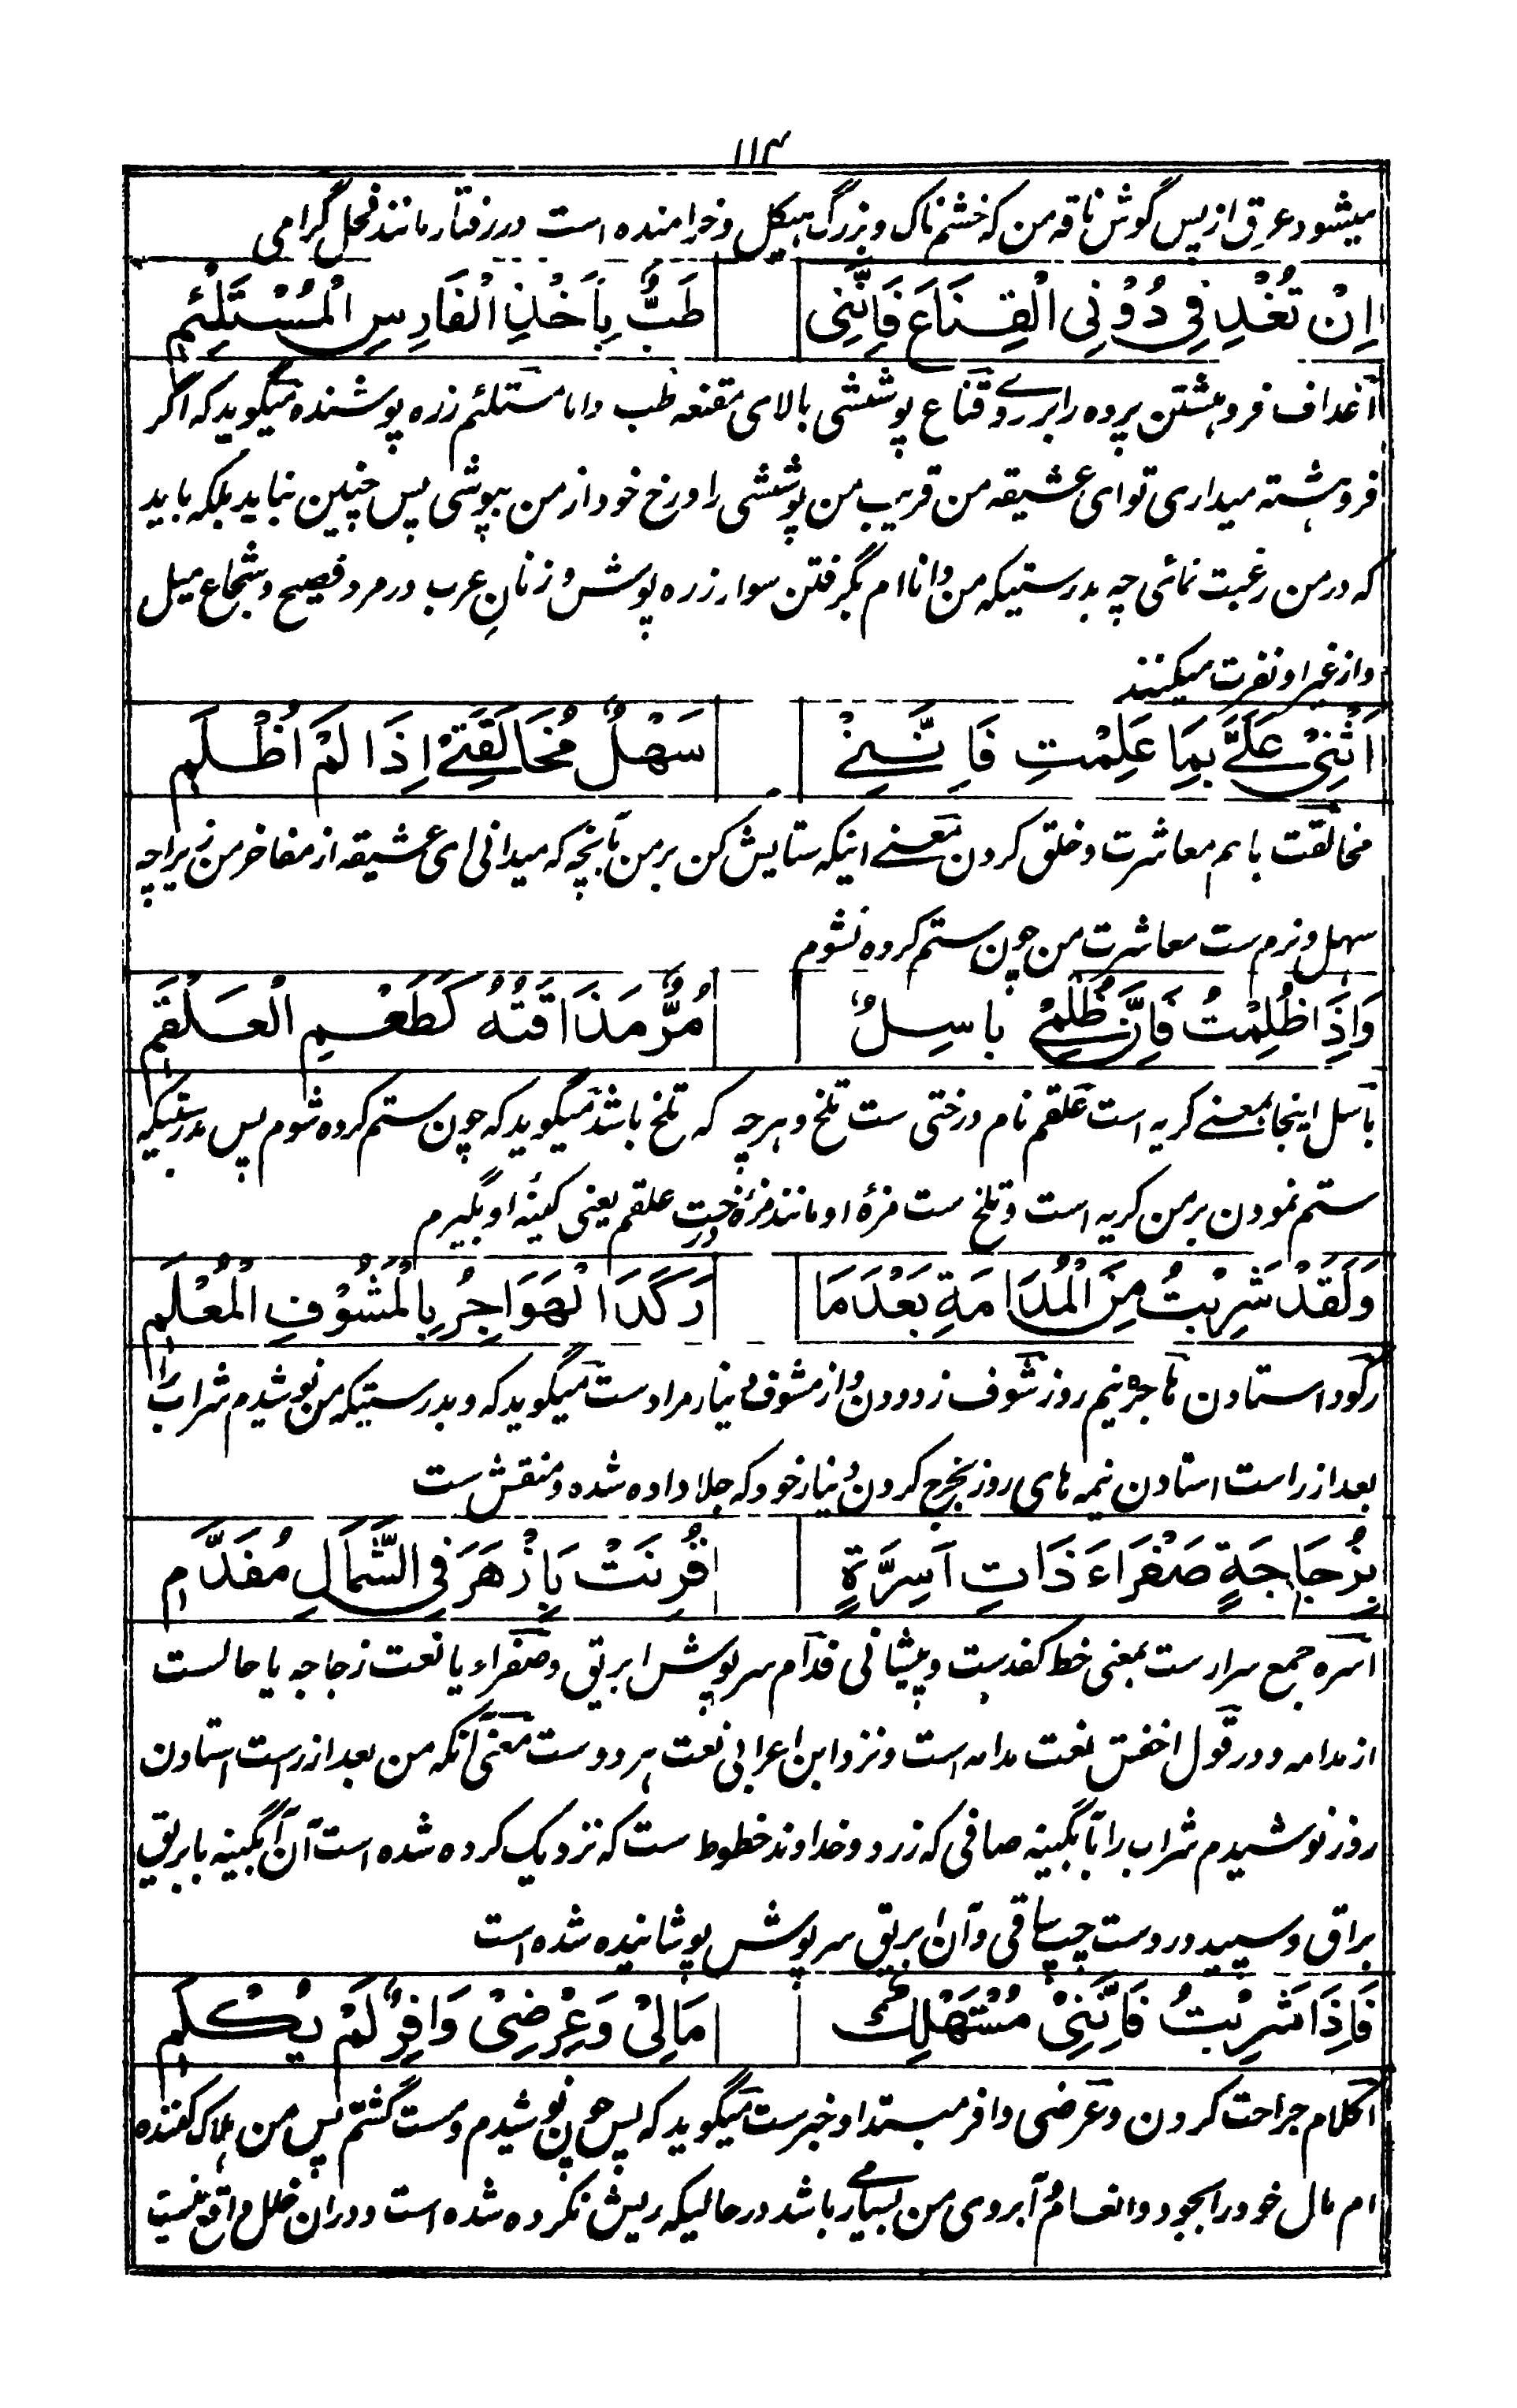 ۱۱۴
میشود عرق از پس گوش ناقه من که خشم ناک و بزرگ هیکل و خرامنده است در رفتار مانند فحل گرامی
اِنْ تُغْدِفِي دُوْنِي الْقِنَاعَ فَاِنَّنِی طَبٌّ بِاَخْذِ الْفَارِسِ الْمُسْتَلْئِمِ
اغداف فروهشتن پرده را بر روے قناع پوششی بالای مقنعه طب دانا مستلئم زره پوشنده میگوید که اگر
فروهشته میداری تو ای عشیقه من قریب من پوششی را و رخ خود از من بپوشی پس چنین نباید بلکه باید
که در من رغبت نمائی چه بدرستیکه من دانا ام بگرفتن سوار زره پوش و زنانِ عرب در مرد فصیح و شجاع میل
و از غیر او نفرت میکنند
اَثْنِیْ عَلَیَّ بِمَا عَلِمْتِ فَاِنَّنِیْ سَهْلٌ مُخَالَقَتِیْ اِذَا لَمْ اُظْلَمِ
مخالقت باهم معاشرت و خلق کردن معنے اینکه ستایش کن بر من بآنچه که میدانی ای عشیقه از مفاخر من زیراچه
سهل و نرم ست معاشرت من چون ستم کرده نشوم
وَاِذَا ظُلِمْتُ فَاِنَّ ظُلْمِیْ بَاسِلٌ مُرٌّ مَذَاقَتُهُ کَطَعْمِ الْعَلْقَمِ
باسل اینجا بمعنے کریه است علقم نام درختی ست تلخ و هر چه که تلخ باشد میگوید که چون ستم کرده شوم پس بدرستیکه
ستم نمودن بر من کریه است و تلخ ست مزهٔ او مانند مزهٔ درخت علقم یعنی کینهٔ او بگیرم
وَلَقَدْ شَرِبْتُ مِنَ الْمُدَامَةِ بَعْدَمَا رَکَدَ الْهَوَاجِرُ بِالْمَشُوْفِ الْمُعْلَمِ
رکود استادن هاجره نیم روز شوف زدودن و از مشوف دینار مراد ست میگوید که و بدرستیکه من نوشیدم شراب را
بعد از راست استادن نیمه های روز بخرج کردن دینار خود که جلا داده شده و منقش ست
بِزُجَاجَةٍ صَفْرَاءَ ذَاتِ اَسِرَّةٍ قُرِنَتْ بِاَزْهَرَ فِی الشَّمَالِ مُفَدَّمِ
اسره جمع سرارست بمعنی خط کفدست و پیشانی فدام سر پوش ابریق و صفراء یا نعت زجاجه یا حالست
از مدامه و در قول اخفش نعت مدامه است و نزد ابن اعرابی نعت هر دوست معنی آنکه من بعد از راست استادن
روز نوشیدم شراب را بآبگینه صافی که زرد و خداوند خطوط ست که نزدیک کرده شده است آن آبگینه بابریق
براق و سپید در دست چپ ساقی و آن ابریق سر پوش پوشانیده شده است
فَاِذَا شَرِبْتُ فَاِنَّنِیْ مُسْتَهْلِکٌ مَالِیْ وَعِرْضِیْ وَافِرٌ لَمْ یُکْلَمِ
اکلام جراحت کردن و عرضی وافر مبتدا و خبرست میگوید که پس چون نوشیدم و مست گشتم پس من هلاک کننده
ام مال خود را بجود و انعام و آبروی من بسیار می باشد در حالیکه ریش نکرده شده است و در ان خلل واقع نیست